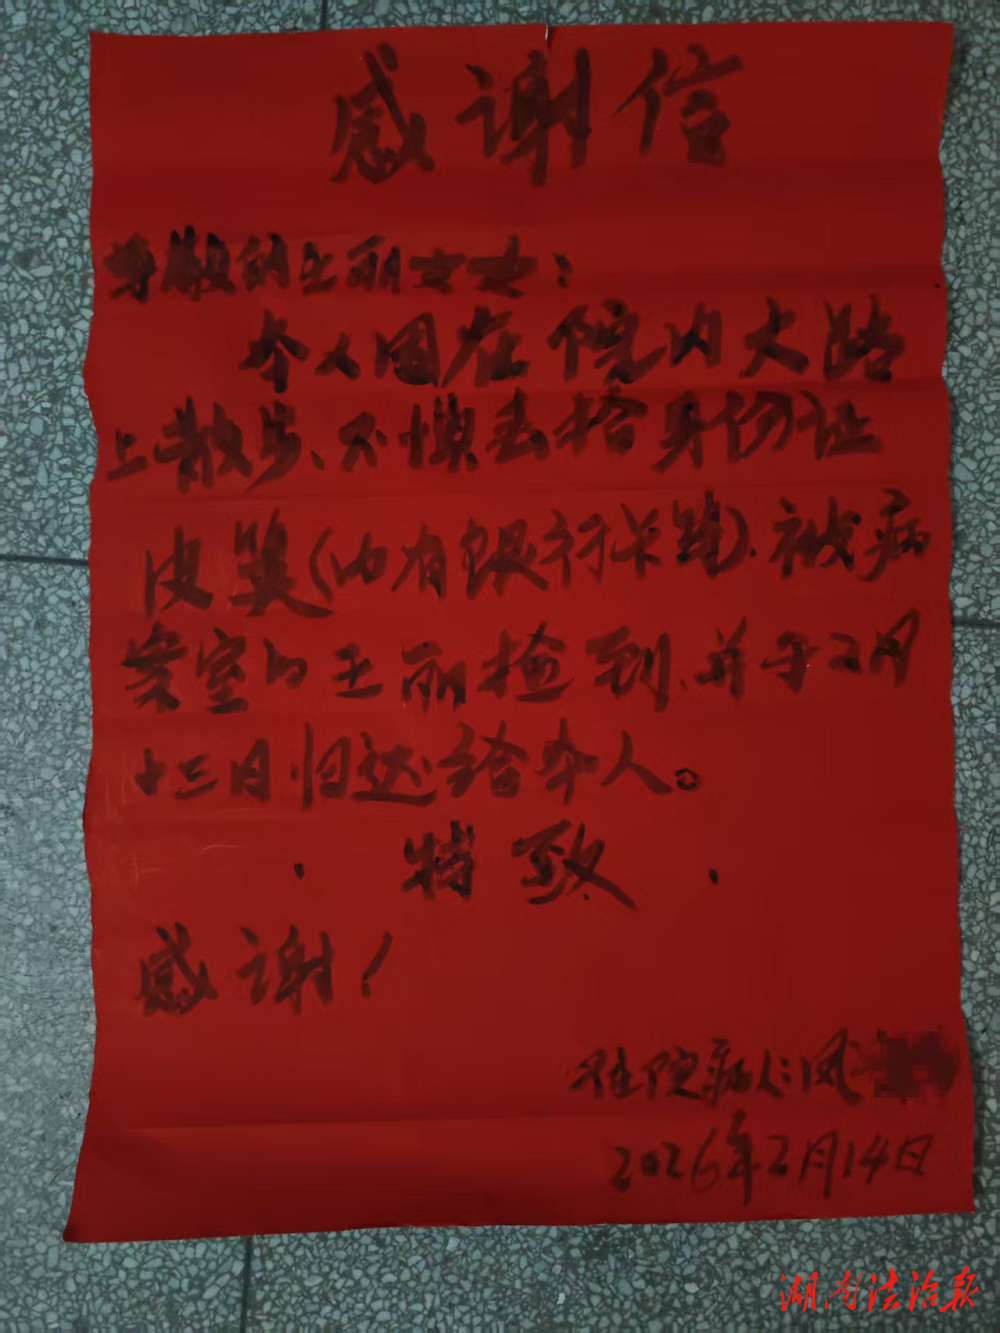 感谢信
尊敬的王丽女士：
本人因在院内大路
上散步、不慎丢拾身份证
皮夹(内有银行卡等)、被病
案室的王丽捡到、并于2月
十三日归还给本人。
特致
感谢！
住院病人:凤
2026年2月14日
湖南法治报